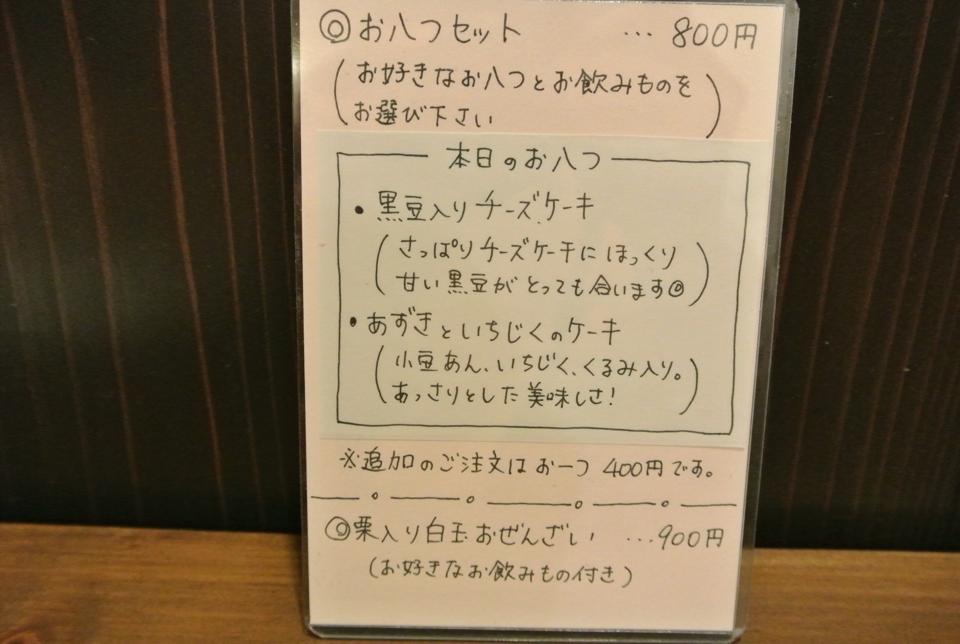 ◎お八つセット … 800円
(お好きなお八つとお飲みものを
お選び下さい)
本日のお八つ
• 黒豆入りチーズケーキ
(さっぱりチーズケーキにほっくり
甘い黒豆がとっても合います◎)
• あずきといちじくのケーキ
(小豆あん、いちじく、くるみ入り。
あっさりとした美味しさ!)
※追加のご注文はお一つ 400円です。
◎栗入り白玉おぜんざい …900円
(お好きなお飲みもの付き)